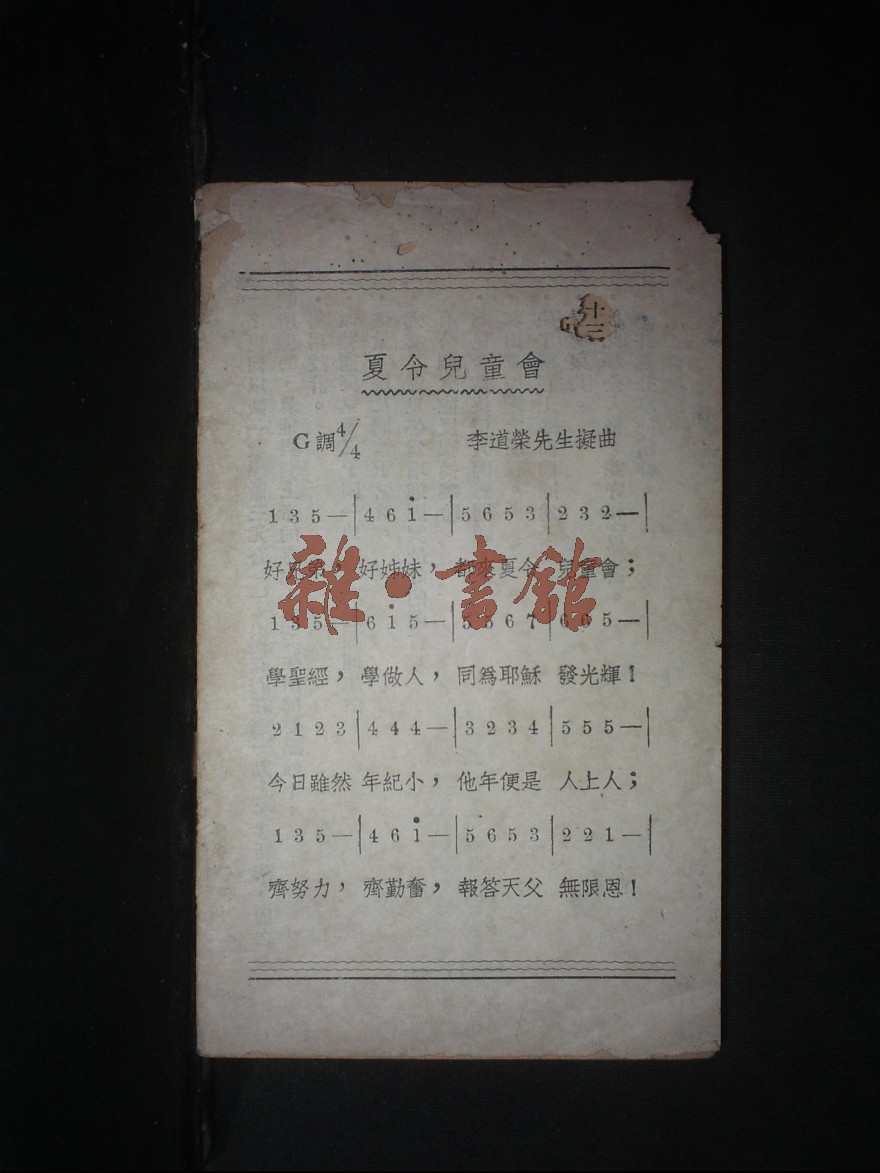 十三
夏令兒童會
G調4/4 李道榮先生擬曲
1 3 5 —|4 6 i —|5 6 5 3|2 3 2 —|
好兄弟，好姊妹，都來夏令 兒童會；
雜·書館
1 3 5 —|6 i 5 —|5 5 6 7|6 6 5 —|
學聖經，學做人，同爲耶穌 發光輝！
2 1 2 3|4 4 4 —|3 2 3 4|5 5 5 —|
今日雖然 年紀小，他年便是 人上人；
1 3 5 —|4 6 i —|5 6 5 3|2 2 1 —|
齊努力，齊勤奮，報答天父 無限恩！